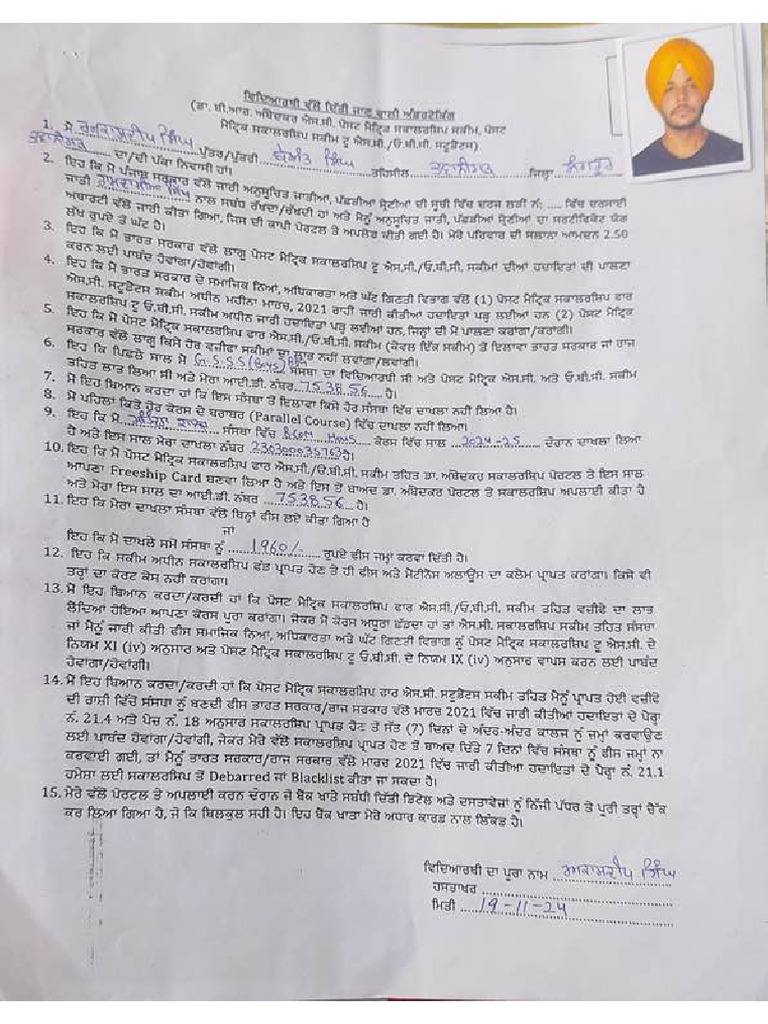 ਵਿਦਿਆਰਥੀ ਵੱਲੋਂ ਦਿੱਤੀ ਜਾਣ ਵਾਲੀ ਅੰਡਰਟੇਕਿੰਗ
(ਡਾ. ਬੀ.ਆਰ. ਅੰਬੇਦਕਰ ਐਸ.ਸੀ. ਪੋਸਟ ਮੈਟ੍ਰਿਕ ਸਕਾਲਰਸ਼ਿਪ ਸਕੀਮ, ਪੋਸਟ
ਮੈਟ੍ਰਿਕ ਸਕਾਲਰਸ਼ਿਪ ਸਕੀਮ ਟੂ ਐਸ.ਸੀ./ਓ.ਬੀ.ਸੀ. ਸਟੂਡੈਂਟਸ)
1. ਮੈਂ ਸਿੰਘ ਪੁੱਤਰ/ਪੁੱਤਰੀ ਬੇਅੰਤ ਸਿੰਘ ਤਹਿਸੀਲ ਭਵਾਨੀਗੜ ਜ਼ਿਲ੍ਹਾ ਸੰਗਰੂਰ
ਭਵਾਨੀਗੜ ਦਾ/ਦੀ ਪੱਕਾ ਨਿਵਾਸੀ ਹਾਂ।
2. ਇਹ ਕਿ ਮੈਂ ਪੰਜਾਬ ਸਰਕਾਰ ਵੱਲੋਂ ਜਾਰੀ ਅਨੁਸੂਚਿਤ ਜਾਤੀਆਂ, ਪੱਛੜੀਆਂ ਸ਼੍ਰੇਣੀਆਂ ਦੀ ਸੂਚੀ ਵਿੱਚ ਦਰਜ ਲੜੀ ਨੰ: ..... ਵਿੱਚ ਦਰਸਾਈ
ਜਾਤੀ ਨਾਲ ਸਬੰਧ ਰੱਖਦਾ/ਰੱਖਦੀ ਹਾਂ ਅਤੇ ਮੈਨੂੰ ਅਨੁਸੂਚਿਤ ਜਾਤੀ, ਪੱਛੜੀਆਂ ਸ਼੍ਰੇਣੀਆਂ ਦਾ ਸਰਟੀਫਿਕੇਟ ਯੋਗ
ਅਥਾਰਟੀ ਵੱਲੋਂ ਜਾਰੀ ਕੀਤਾ ਗਿਆ, ਜਿਸ ਦੀ ਕਾਪੀ ਪੋਰਟਲ ਤੇ ਅਪਲੋਡ ਕੀਤੀ ਗਈ ਹੈ। ਮੇਰੇ ਪਰਿਵਾਰ ਦੀ ਸਲਾਨਾ ਆਮਦਨ 2.50
ਲੱਖ ਰੁਪਏ ਤੋਂ ਘੱਟ ਹੈ।
3. ਇਹ ਕਿ ਮੈਂ ਭਾਰਤ ਸਰਕਾਰ ਵੱਲੋਂ ਲਾਗੂ ਪੋਸਟ ਮੈਟ੍ਰਿਕ ਸਕਾਲਰਸ਼ਿਪ ਟੂ ਐਸ.ਸੀ./ਓ.ਬੀ.ਸੀ. ਸਕੀਮਾਂ ਦੀਆਂ ਹਦਾਇਤਾਂ ਦੀ ਪਾਲਣਾ
ਕਰਨ ਲਈ ਪਾਬੰਦ ਹੋਵਾਂਗਾ/ਹੋਵਾਂਗੀ।
4. ਇਹ ਕਿ ਮੈਂ ਭਾਰਤ ਸਰਕਾਰ ਦੇ ਸਮਾਜਿਕ ਨਿਆਂ, ਅਧਿਕਾਰਤਾ ਅਤੇ ਘੱਟ ਗਿਣਤੀ ਵਿਭਾਗ ਵੱਲੋਂ (1) ਪੋਸਟ ਮੈਟ੍ਰਿਕ ਸਕਾਲਰਸ਼ਿਪ ਫਾਰ
ਐਸ.ਸੀ. ਸਟੂਡੈਂਟਸ ਸਕੀਮ ਅਧੀਨ ਮਹੀਨਾ ਮਾਰਚ, 2021 ਰਾਹੀਂ ਜਾਰੀ ਕੀਤੀਆਂ ਹਦਾਇਤਾਂ ਪੜ੍ਹ ਲਈਆਂ ਹਨ (2) ਪੋਸਟ ਮੈਟ੍ਰਿਕ
ਸਕਾਲਰਸ਼ਿਪ ਟੂ ਓ.ਬੀ.ਸੀ. ਸਕੀਮ ਅਧੀਨ ਜਾਰੀ ਹਦਾਇਤਾਂ ਪੜ੍ਹ ਲਈਆਂ ਹਨ, ਜਿਨ੍ਹਾਂ ਦੀ ਮੈਂ ਪਾਲਣਾ ਕਰਾਂਗਾ/ਕਰਾਂਗੀ।
5. ਇਹ ਕਿ ਮੈਂ ਪੋਸਟ ਮੈਟ੍ਰਿਕ ਸਕਾਲਰਸ਼ਿਪ ਫਾਰ ਐਸ.ਸੀ./ਓ.ਬੀ.ਸੀ. ਸਕੀਮ (ਕੇਵਲ ਇੱਕ ਸਕੀਮ) ਤੋਂ ਇਲਾਵਾ ਭਾਰਤ ਸਰਕਾਰ ਜਾਂ ਰਾਜ
ਸਰਕਾਰ ਵੱਲੋਂ ਲਾਗੂ ਕਿਸੇ ਹੋਰ ਵਜ਼ੀਫਾ ਸਕੀਮਾਂ ਦਾ ਲਾਭ ਨਹੀਂ ਲਵਾਂਗਾ/ਲਵਾਂਗੀ।
6. ਇਹ ਕਿ ਪਿਛਲੇ ਸਾਲ ਮੈਂ G.S.S.S (Boys) ਸੰਸਥਾ ਦਾ ਵਿਦਿਆਰਥੀ ਸੀ ਅਤੇ ਪੋਸਟ ਮੈਟ੍ਰਿਕ ਐਸ.ਸੀ. ਅਤੇ ਓ.ਬੀ.ਸੀ. ਸਕੀਮ
ਤਹਿਤ ਲਾਭ ਲਿਆ ਸੀ ਅਤੇ ਮੇਰਾ ਆਈ.ਡੀ. ਨੰਬਰ 753856 ਹੈ।
7. ਮੈਂ ਇਹ ਬਿਆਨ ਕਰਦਾ ਹਾਂ ਕਿ ਇਸ ਸੰਸਥਾ ਤੋਂ ਇਲਾਵਾ ਕਿਸੇ ਹੋਰ ਸੰਸਥਾ ਵਿੱਚ ਦਾਖਲਾ ਨਹੀਂ ਲਿਆ ਹੈ।
8. ਮੈਂ ਪਹਿਲਾਂ ਕਿਤੇ ਹੋਰ ਕੋਰਸ ਦੇ ਬਰਾਬਰ (Parallel Course) ਵਿੱਚ ਦਾਖਲਾ ਨਹੀਂ ਲਿਆ।
9. ਇਹ ਕਿ ਮੈਂ ਸੰਸਥਾ ਵਿੱਚ BCOM Hons ਕੋਰਸ ਵਿੱਚ ਸਾਲ 2024-25 ਦੌਰਾਨ ਦਾਖਲਾ ਲਿਆ
ਹੈ ਅਤੇ ਇਸ ਸਾਲ ਮੇਰਾ ਦਾਖਲਾ ਨੰਬਰ 230300035763 ਹੈ।
10. ਇਹ ਕਿ ਮੈਂ ਪੋਸਟ ਮੈਟ੍ਰਿਕ ਸਕਾਲਰਸ਼ਿਪ ਫਾਰ ਐਸ.ਸੀ./ਓ.ਬੀ.ਸੀ. ਸਕੀਮ ਤਹਿਤ ਡਾ. ਅੰਬੇਦਕਰ ਸਕਾਲਰਸ਼ਿਪ ਪੋਰਟਲ ਤੇ ਇਸ ਸਾਲ
ਆਪਣਾ Freeship Card ਬਣਵਾ ਲਿਆ ਹੈ ਅਤੇ ਇਸ ਤੋਂ ਬਾਅਦ ਡਾ. ਅੰਬੇਦਕਰ ਪੋਰਟਲ ਤੇ ਸਕਾਲਰਸ਼ਿਪ ਅਪਲਾਈ ਕੀਤਾ ਹੈ
ਅਤੇ ਮੇਰਾ ਇਸ ਸਾਲ ਦਾ ਆਈ.ਡੀ. ਨੰਬਰ 753856 ਹੈ।
11. ਇਹ ਕਿ ਮੇਰਾ ਦਾਖਲਾ ਸੰਸਥਾ ਵੱਲੋਂ ਬਿਨ੍ਹਾਂ ਫੀਸ ਲਏ ਕੀਤਾ ਗਿਆ ਹੈ
ਜਾਂ
ਇਹ ਕਿ ਮੈਂ ਦਾਖਲੇ ਸਮੇਂ ਸੰਸਥਾ ਨੂੰ 1960/- ਰੁਪਏ ਫੀਸ ਜਮ੍ਹਾਂ ਕਰਵਾ ਦਿੱਤੀ ਹੈ।
12. ਇਹ ਕਿ ਸਕੀਮ ਅਧੀਨ ਸਕਾਲਰਸ਼ਿਪ ਫੰਡ ਪ੍ਰਾਪਤ ਹੋਣ ਤੇ ਹੀ ਫੀਸ ਅਤੇ ਮੈਂਟੀਨੈਂਸ ਅਲਾਊਂਸ ਦਾ ਕਲੇਮ ਪ੍ਰਾਪਤ ਕਰਾਂਗਾ। ਕਿਸੇ ਵੀ
ਤਰ੍ਹਾਂ ਦਾ ਕੋਰਟ ਕੇਸ ਨਹੀਂ ਕਰਾਂਗਾ।
13. ਮੈਂ ਇਹ ਬਿਆਨ ਕਰਦਾ/ਕਰਦੀ ਹਾਂ ਕਿ ਪੋਸਟ ਮੈਟ੍ਰਿਕ ਸਕਾਲਰਸ਼ਿਪ ਫਾਰ ਐਸ.ਸੀ./ਓ.ਬੀ.ਸੀ. ਸਕੀਮ ਤਹਿਤ ਵਜ਼ੀਫੇ ਦਾ ਲਾਭ
ਲੈਂਦਿਆਂ ਹੋਇਆ ਆਪਣਾ ਕੋਰਸ ਪੂਰਾ ਕਰਾਂਗਾ। ਜੇਕਰ ਮੈਂ ਕੋਰਸ ਅਧੂਰਾ ਛੱਡਦਾ ਹਾਂ ਤਾਂ ਐਸ.ਸੀ. ਸਕੀਮ ਤਹਿਤ ਸੰਸਥਾ
ਜਾਂ ਮੈਨੂੰ ਜਾਰੀ ਕੀਤੀ ਫੀਸ ਸਮਾਜਿਕ ਨਿਆਂ, ਅਧਿਕਾਰਤਾ ਅਤੇ ਘੱਟ ਗਿਣਤੀ ਵਿਭਾਗ ਨੂੰ ਪੋਸਟ ਮੈਟ੍ਰਿਕ ਸਕਾਲਰਸ਼ਿਪ ਟੂ ਐਸ.ਸੀ. ਦੇ
ਨਿਯਮ XI (iv) ਅਨੁਸਾਰ ਅਤੇ ਪੋਸਟ ਮੈਟ੍ਰਿਕ ਸਕਾਲਰਸ਼ਿਪ ਟੂ ਓ.ਬੀ.ਸੀ. ਦੇ ਨਿਯਮ IX (iv) ਅਨੁਸਾਰ ਵਾਪਸ ਕਰਨ ਲਈ ਪਾਬੰਦ
ਹੋਵਾਂਗਾ/ਹੋਵਾਂਗੀ।
14. ਮੈਂ ਇਹ ਬਿਆਨ ਕਰਦਾ/ਕਰਦੀ ਹਾਂ ਕਿ ਪੋਸਟ ਮੈਟ੍ਰਿਕ ਸਕਾਲਰਸ਼ਿਪ ਫਾਰ ਐਸ.ਸੀ. ਸਟੂਡੈਂਟਸ ਸਕੀਮ ਤਹਿਤ ਮੈਨੂੰ ਪ੍ਰਾਪਤ ਹੋਈ ਵਜ਼ੀਫੇ
ਦੀ ਰਾਸ਼ੀ ਵਿੱਚੋਂ ਸੰਸਥਾ ਨੂੰ ਬਣਦੀ ਫੀਸ ਭਾਰਤ ਸਰਕਾਰ/ਰਾਜ ਸਰਕਾਰ ਵੱਲੋਂ ਮਾਰਚ 2021 ਵਿੱਚ ਜਾਰੀ ਕੀਤੀਆਂ ਹਦਾਇਤਾਂ ਦੇ ਪੈਰ੍ਹਾ
ਨੰ. 21.4 ਅਤੇ ਪੇਜ਼ ਨੰ. 18 ਅਨੁਸਾਰ ਸਕਾਲਰਸ਼ਿਪ ਪ੍ਰਾਪਤ ਹੋਣ ਤੋਂ ਸੱਤ (7) ਦਿਨਾਂ ਦੇ ਅੰਦਰ-ਅੰਦਰ ਕਾਲਜ ਨੂੰ ਜਮ੍ਹਾਂ ਕਰਵਾਉਣ
ਲਈ ਪਾਬੰਦ ਹੋਵਾਂਗਾ/ਹੋਵਾਂਗੀ, ਜੇਕਰ ਮੇਰੇ ਵੱਲੋਂ ਸਕਾਲਰਸ਼ਿਪ ਪ੍ਰਾਪਤ ਹੋਣ ਤੋਂ ਬਾਅਦ ਦਿੱਤੇ 7 ਦਿਨਾਂ ਵਿੱਚ ਸੰਸਥਾ ਨੂੰ ਫੀਸ ਜਮ੍ਹਾਂ ਨਾ
ਕਰਵਾਈ ਗਈ, ਤਾਂ ਮੈਨੂੰ ਭਾਰਤ ਸਰਕਾਰ/ਰਾਜ ਸਰਕਾਰ ਵੱਲੋਂ ਮਾਰਚ 2021 ਵਿੱਚ ਜਾਰੀ ਕੀਤੀਆਂ ਹਦਾਇਤਾਂ ਦੇ ਪੈਰ੍ਹਾ ਨੰ. 21.1
ਹਮੇਸ਼ਾ ਲਈ ਸਕਾਲਰਸ਼ਿਪ ਤੋਂ Debarred ਜਾਂ Blacklist ਕੀਤਾ ਜਾ ਸਕਦਾ ਹੈ।
15. ਮੇਰੇ ਵੱਲੋਂ ਪੋਰਟਲ ਤੇ ਅਪਲਾਈ ਕਰਨ ਦੌਰਾਨ ਜੋ ਬੈਂਕ ਖਾਤੇ ਸਬੰਧੀ ਦਿੱਤੀ ਡਿਟੇਲ ਅਤੇ ਦਸਤਾਵੇਜਾਂ ਨੂੰ ਨਿੱਜੀ ਪੱਧਰ ਤੇ ਪੂਰੀ ਤਰ੍ਹਾਂ ਚੈੱਕ
ਕਰ ਲਿਆ ਗਿਆ ਹੈ, ਜੋ ਕਿ ਬਿਲਕੁਲ ਸਹੀ ਹੈ। ਇਹ ਬੈਂਕ ਖਾਤਾ ਮੇਰੇ ਅਧਾਰ ਕਾਰਡ ਨਾਲ ਲਿੰਕਡ ਹੈ।
ਵਿਦਿਆਰਥੀ ਦਾ ਪੂਰਾ ਨਾਮ ਸਿੰਘ
ਹਸਤਾਖਰ
ਮਿਤੀ 19-11-24